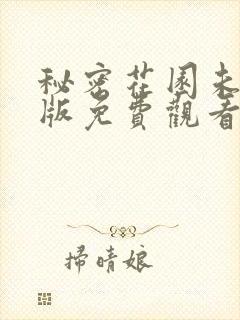 秘密花園未
版免費觀看
掃晴娘